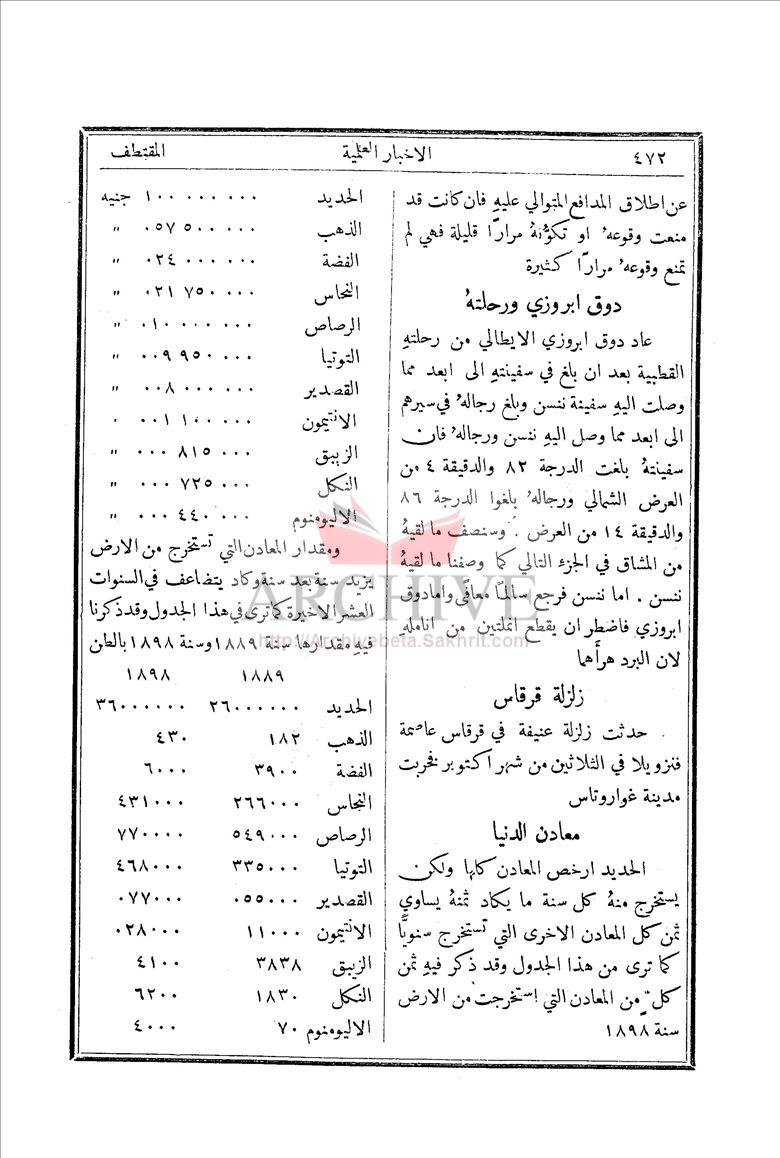 ٤٧٢
الاخبار العلمية
المقتطف
عن اطلاق المدافع المتوالي عليهِ فان كانت قد
منعت وقوعهُ او تكوُّنهُ مرارًا قليلة فهي لم
تمنع وقوعهُ مرارًا كثيرة
دوق ابروزي ورحلتهُ
عاد دوق ابروزي الايطالي من رحلتهِ
القطبية بعد ان بلغ في سفينتهِ الى ابعد مما
وصلت اليهِ سفينة ننسن وبلغ رجالهُ في سيرهم
الى ابعد مما وصل اليهِ ننسن ورجالهُ فان
سفينتهُ بلغت الدرجة ٨٢ والدقيقة ٤ من
العرض الشمالي ورجالهُ بلغوا الدرجة ٨٦
والدقيقة ١٤ من العرض . وسنصف ما لقيهُ
من المشاق في الجزء التالي كما وصفنا ما لقيهُ
ننسن . اما ننسن فرجع سالمًا معافًى واما دوق
ابروزي فاضطر ان يقطع انملتين من اناملهِ
لان البرد هرأهما
زلزلة قرقاس
حدثت زلزلة عنيفة في قرقاس عاصمة
فنزويلا في الثلاثين من شهر اكتوبر فخربت
مدينة غواروتاس
معادن الدنيا
الحديد ارخص المعادن كلها ولكن
يستخرج منهُ كل سنة ما يكاد ثمنهُ يساوي
ثمن كل المعادن الاخرى التي تستخرج سنويًّا
كما ترى من هذا الجدول وقد ذكر فيهِ ثمن
كلٍّ من المعادن التي استخرجت من الارض
سنة ١٨٩٨
الحديد ١٠٠ ٠٠٠ ٠٠٠ جنيه
الذهب ٠٥٧ ٥٠٠ ٠٠٠ "
الفضة ٠٢٤ ٠٠٠ ٠٠٠ "
النحاس ٠٢١ ٧٥٠ ٠٠٠ "
الرصاص ٠١٠ ٠٠٠ ٠٠٠ "
التوتيا ٠٠٩ ٩٥٠ ٠٠٠ "
القصدير ٠٠٨ ٠٠٠ ٠٠٠ "
الانتيمون ٠٠١ ١٠٠ ٠٠٠
الزيبق ٠٠٠ ٨١٥ ٠٠٠ "
النكل ٠٠٠ ٧٢٥ ٠٠٠ "
الاليومنوم ٠٠٠ ٤٤٠ ٠٠٠ "
ومقدار المعادن التي تستخرج من الارض
يزيد سنة بعد سنة وكاد يتضاعف في السنوات
العشر الاخيرة كما ترى في هذا الجدول وقد ذكرنا
فيهِ مقدارها سنة ١٨٨٩ وسنة ١٨٩٨ بالطن
١٨٨٩ ١٨٩٨
الحديد ٢٦٠٠٠٠٠٠ ٣٦٠٠٠٠٠٠
الذهب ١٨٢ ٤٣٠
الفضة ٣٩٠٠ ٦٠٠٠
النحاس ٢٦٦٠٠٠ ٤٣١٠٠٠
الرصاص ٥٤٩٠٠٠ ٧٧٠٠٠٠
التوتيا ٣٣٥٠٠٠ ٤٦٨٠٠٠
القصدير ٠٥٥٠٠٠ ٠٧٧٠٠٠
الانتيمون ١١٠٠٠ ٠٢٨٠٠٠
الزيبق ٣٨٣٨ ٤١٠٠
النكل ١٨٣٠ ٦٢٠٠
الاليومنوم ٧٠ ٤٠٠٠
ARCHIVE
http://Archivebeta.Sakhrit.com